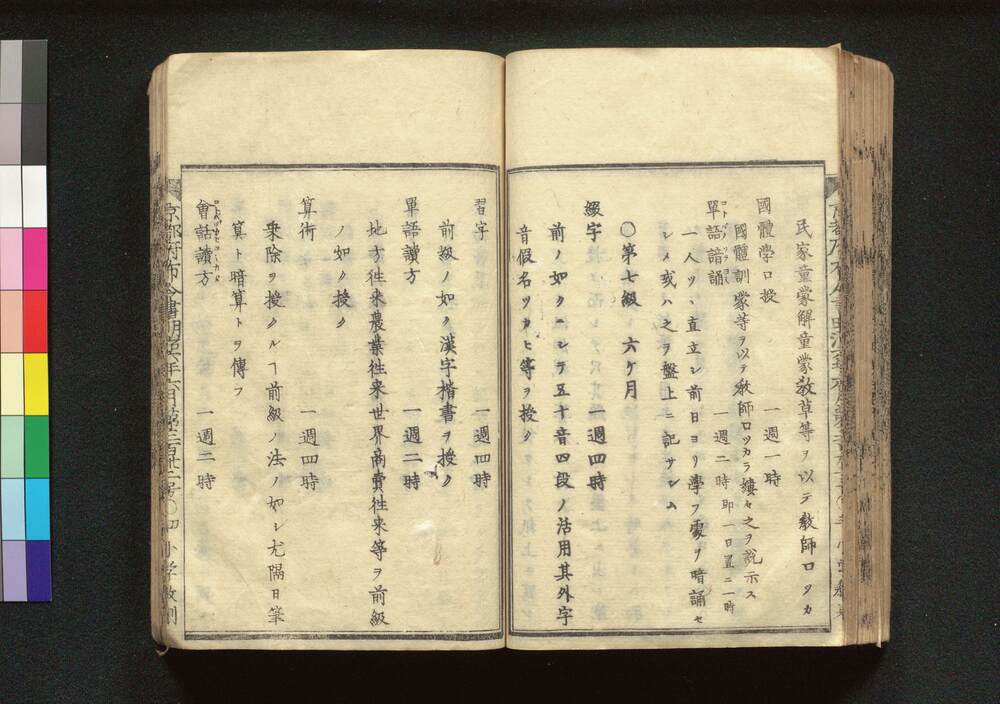 民家童蒙解童蒙敎草等ヲ以テ敎師口ツカ
國體學口授 一週一時
國體訓蒙等ヲ以テ敎師口ツカラ縷々之ヲ說示ス
單語諳誦 一週二時 即一日置ニ一時
一人ツヽ直立シ前日ヨリ學フ處ヲ暗誦セ
シメ或ハ之ヲ盤上ニ記サシム
〇第七級 六ケ月
綴字 一週四時
前ノ如クニシテ五十音四段ノ活用其外字
音假名ツカヒ等ヲ授ク
習字 一週四時
前級ノ如ク漢字楷書ヲ授ク
單語讀方 一週二時
地方往来農業往来世界商賣往来等ヲ前級
ノ如ク授ク
算術 一週四時
乗除ヲ授クルヿ前級ノ法ノ如シ尤隔日筆
算ト暗算トヲ傳フ
會話讀方 一週二時
京都府布令書明治六年六月第二百廿二号〇四小学教則